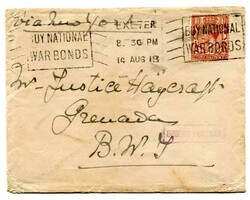 via New York
EXETER
8. 30 PM
14 AUG 18
BUY NATIONAL
WAR BONDS
BUY NATIONAL
WAR BONDS
Mr Justice Haycraft
Grenada
B.W.I